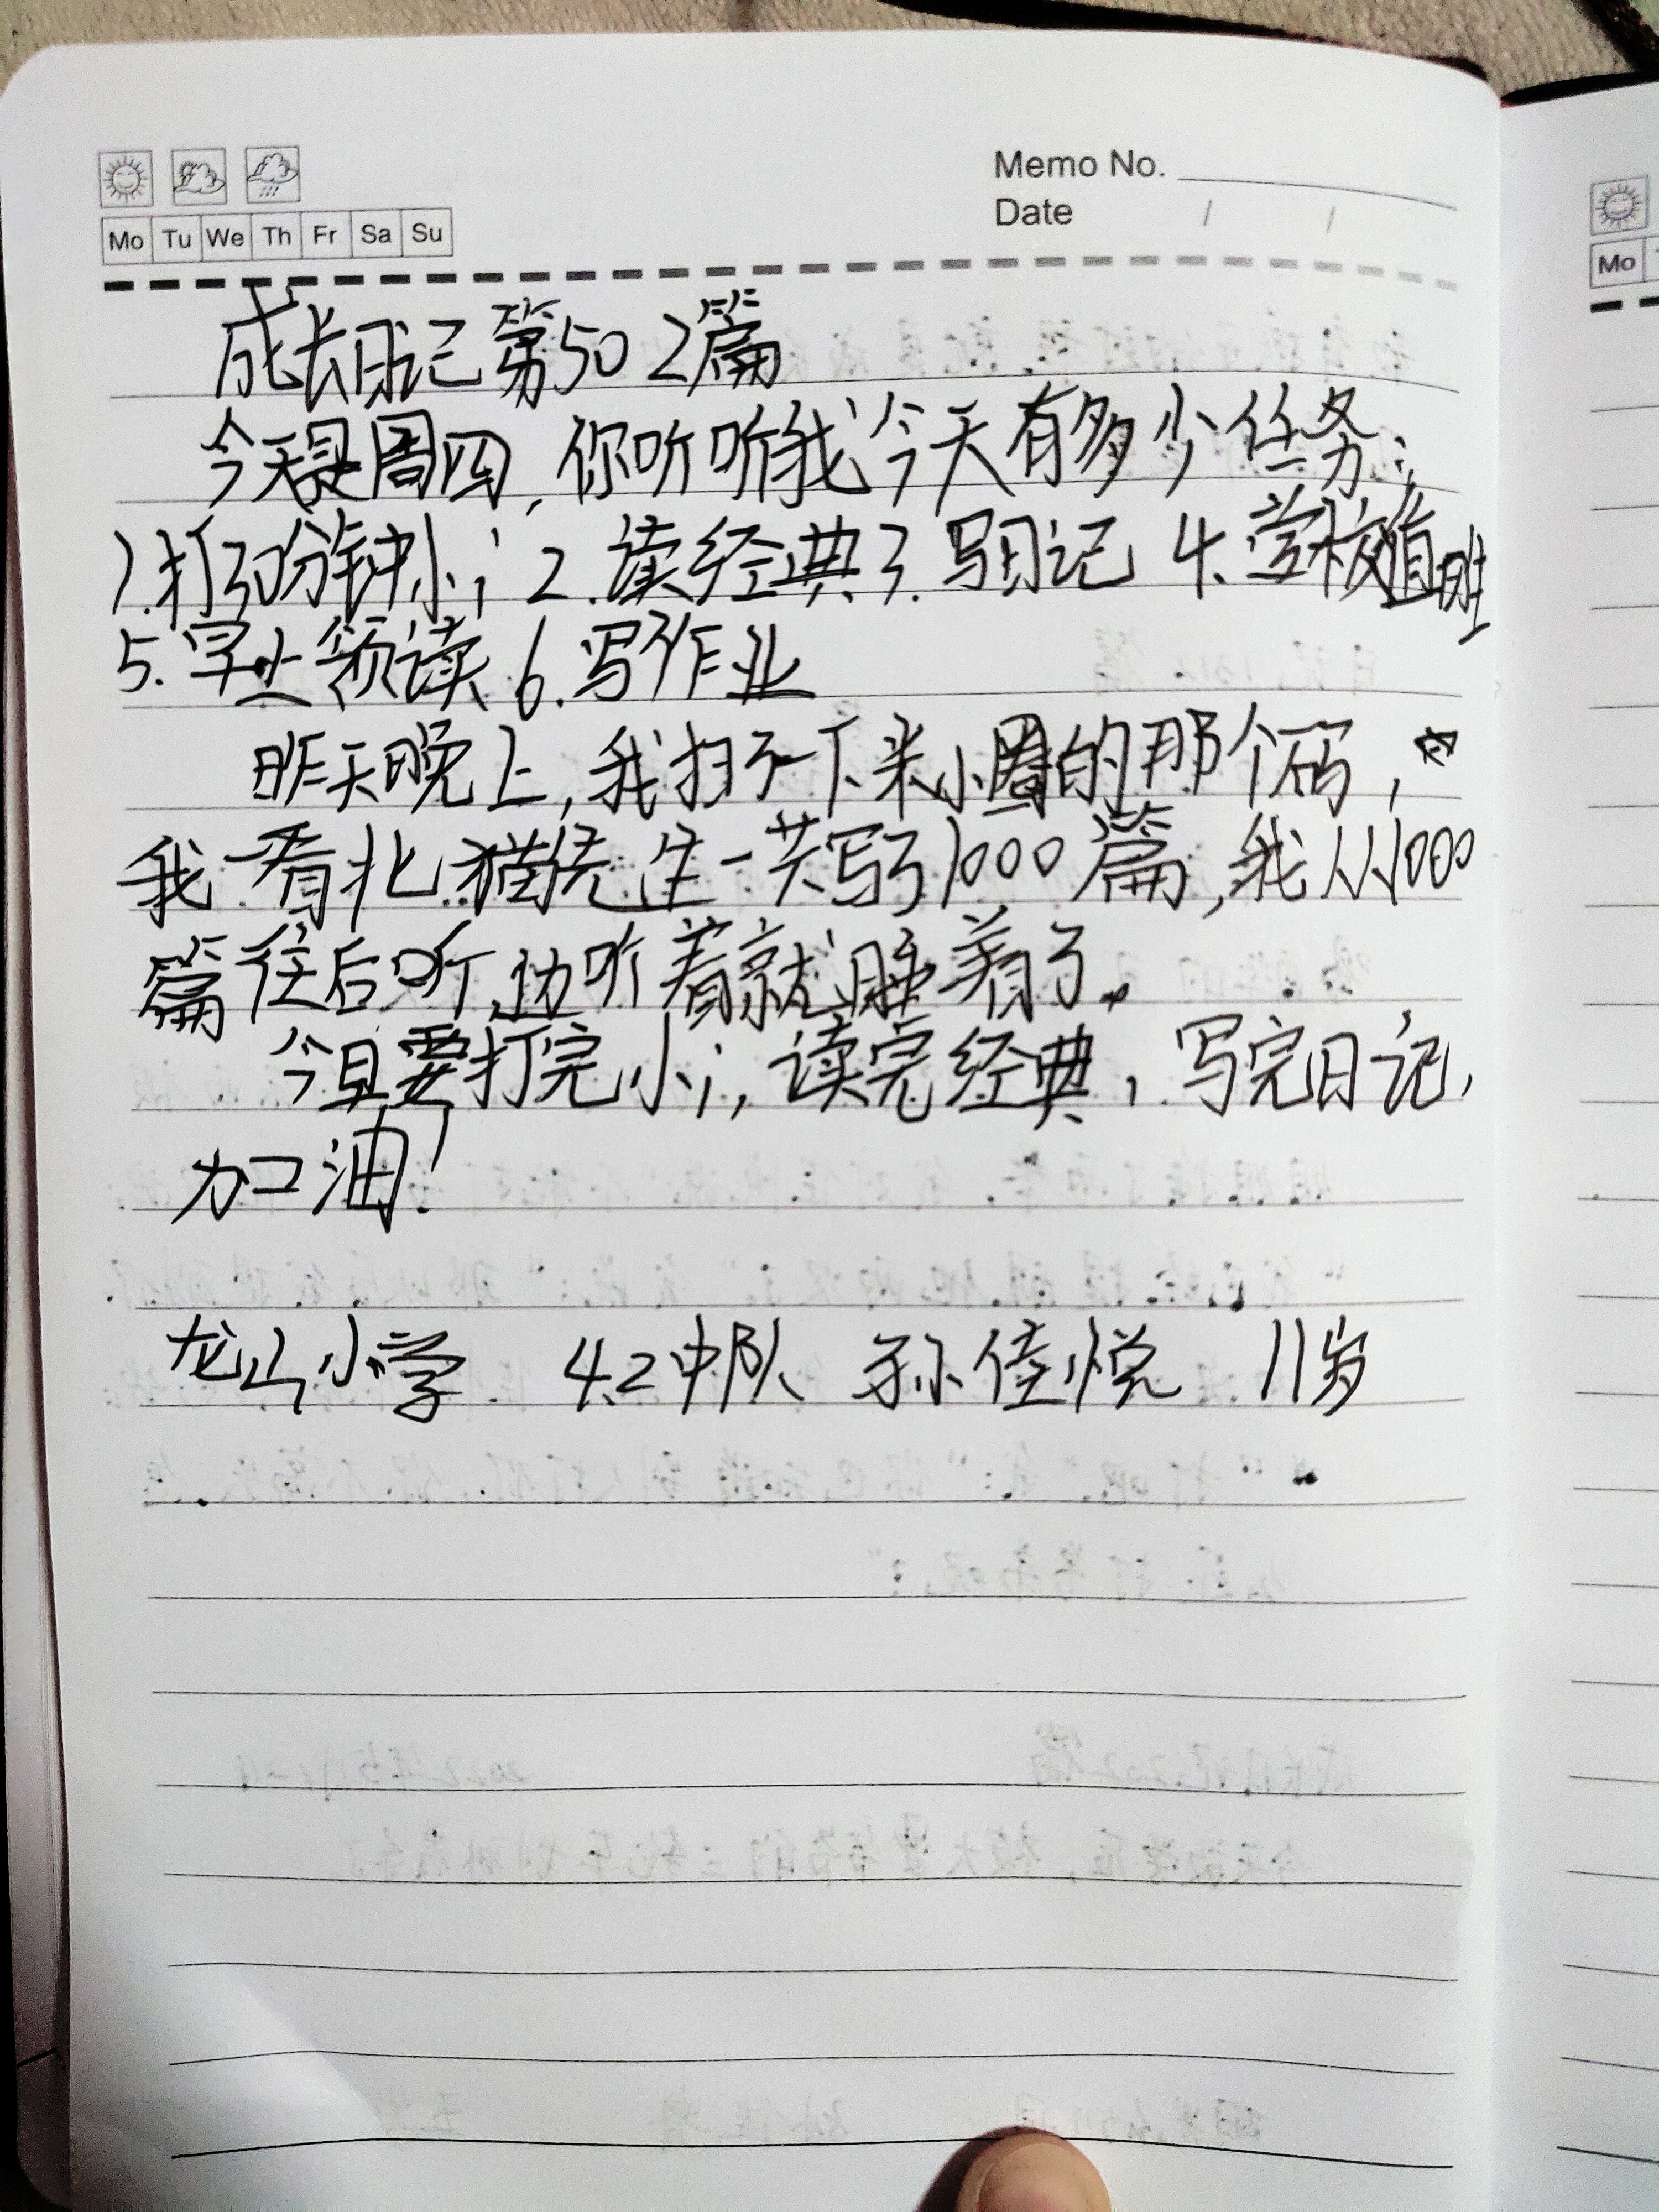 Memo No.
Date / /
Mo Tu We Th Fr Sa Su
成长日记第502篇
今天是周四,你听听我今天有多少任务:
1.打30分钟小i 2.读经典3.写日记 4.学校值班
5.早上领读 6.写作业
昨天晚上,我扫了一下米小圈的那个码,
我一看北猫先生一共写了1000篇,我从1000
篇往后听,边听着就睡着了。
今日要打完小i,读完经典,写完日记,
加油!
龙山小学 4.2中队 孙佳悦 11岁
Mo